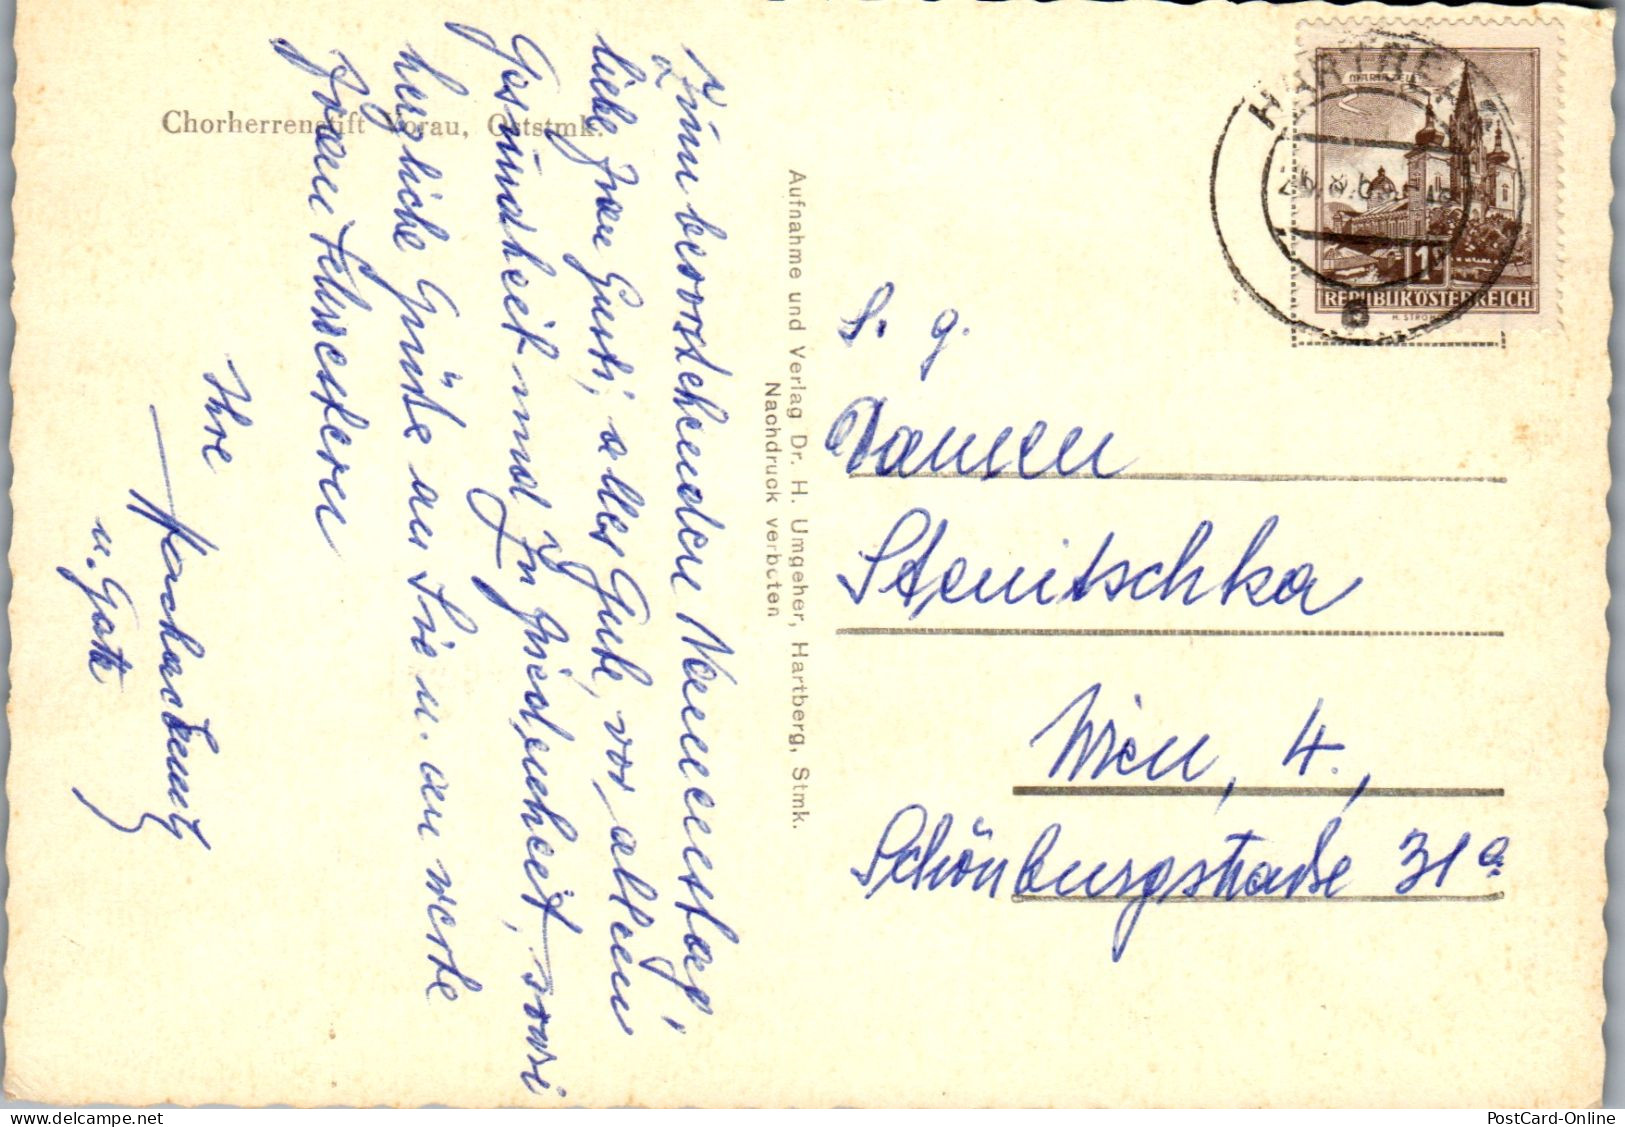 Chorherrenstift Vorau, Oststmk.
Zum bevorstehenden Namenstag,
liebe Frau Gusti, alles Gute, vor allem
Gesundheit und Zufriedenheit, sowie
herzliche Grüße an Sie u. an werte
Frau Schwestern
Ihre
u. Gatte
Aufnahme und Verlag Dr. H. Umgeher, Hartberg, Stmk.
Nachdruck verboten
MARIAZELL
1
REPUBLIK ÖSTERREICH
S. g.
Damen
Stenitschka
Wien, 4.,
Schönburgstraße 31a
PostCard - PostCard-Online